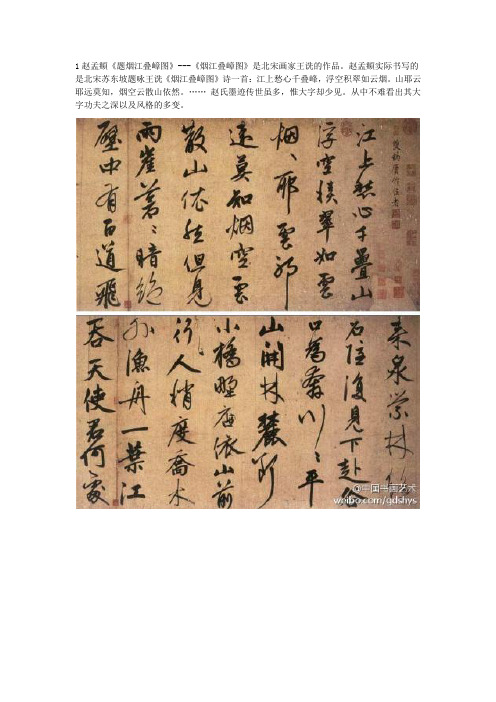 1 赵孟頫《题烟江叠嶂图》---《烟江叠嶂图》是北宋画家王洗的作品。赵孟頫实际书写的
是北宋苏东坡题咏王洗《烟江叠嶂图》诗一首：江上愁心千叠峰，浮空积翠如云烟。山耶云
耶远莫知，烟空云散山依然。…… 赵氏墨迹传世虽多，惟大字却少见。从中不难看出其大
字功夫之深以及风格的多变。
江上愁心千疊山
浮空積翠如雲
烟、耶雲耶
遠莫知烟空雲
散山依然但見
兩崖蒼、暗絶
壑中有百道飛
来泉縈林絡
石隱復見下赴谷
口為奔川、平
山開林麓斷
小橋野店依山前
行人稍度喬木
外漁舟一葉江
吞天使君何處
@中国书画艺术
weibo.com/gdshys